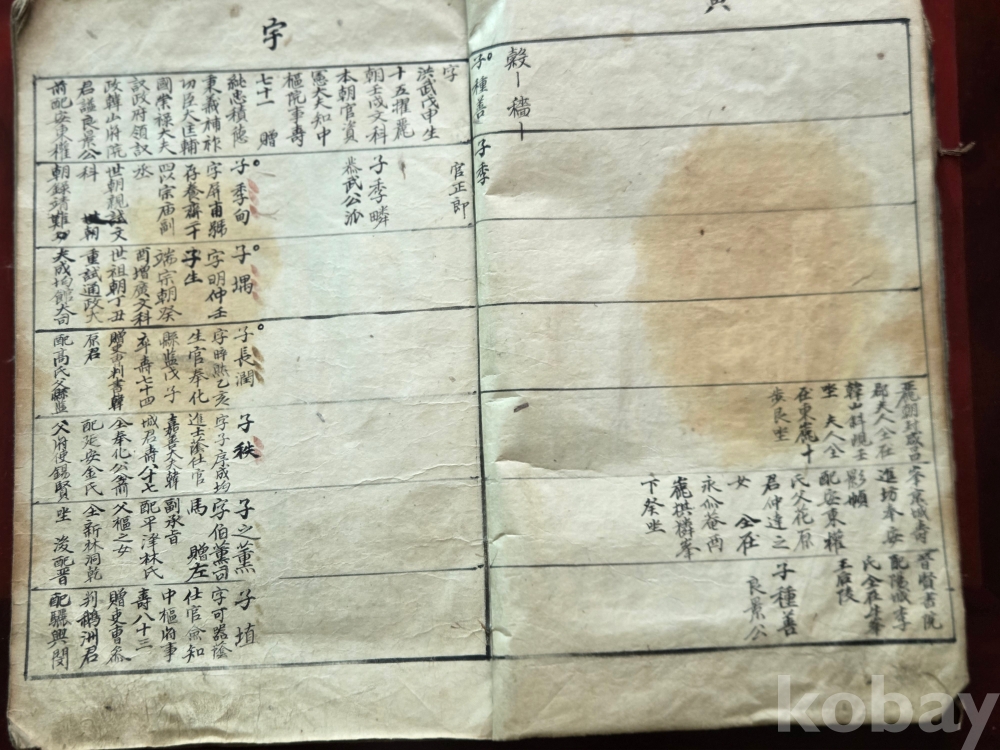 黄
穀一穡一
子種善
子季
麗朝封咸昌
郡夫人仝在
韓山斜峴壬
坐 夫人仝
在東麓十
步艮坐
影幀
配安東權
氏父花原
君仲達之
女 仝在
永仙菴西
麓拱憐峯
下癸坐
晉賢書院
配陽城李
子種善
良景公
宇
字
洪武戊申生
十五擢麗
朝壬戌文科
本朝官資
憲大夫知中
樞院事壽
七十一 贈
純忠積德
秉義補祚
切臣大匡輔
國崇祿大夫
議政府領議
政韓山府院
君謚良景公
前配安東權
官正郎
子季疄
恭武公派
子季甸
字屏甫號
存養齋二十
四以宗庙副
丞
世朝親試文
科 世朝
朝錄靖難功
子堣
字明仲壬
子生
端宗朝癸
酉增廣文科
世祖朝丁丑
重試通政大
夫成均館大司
子長潤
字時熙乙亥
生官奉化
縣監戊子
卒壽七十四
贈吏判書韓
原君
配高氏父縣監
子秩
字子序成均
進士蔭仕官
嘉善大夫韓
城君壽八十七
仝奉化公前
配延安金氏
父府使錫賢
子之薰
字伯薰司
馬 贈左
副承旨
配平澤林氏
父樞之女
仝新林洞乾
坐 後配晉
子埴
字可器蔭
仕官僉知
中樞府事
壽八十三
贈吏曹參
判鵝洲君
配驪興閔
kobay